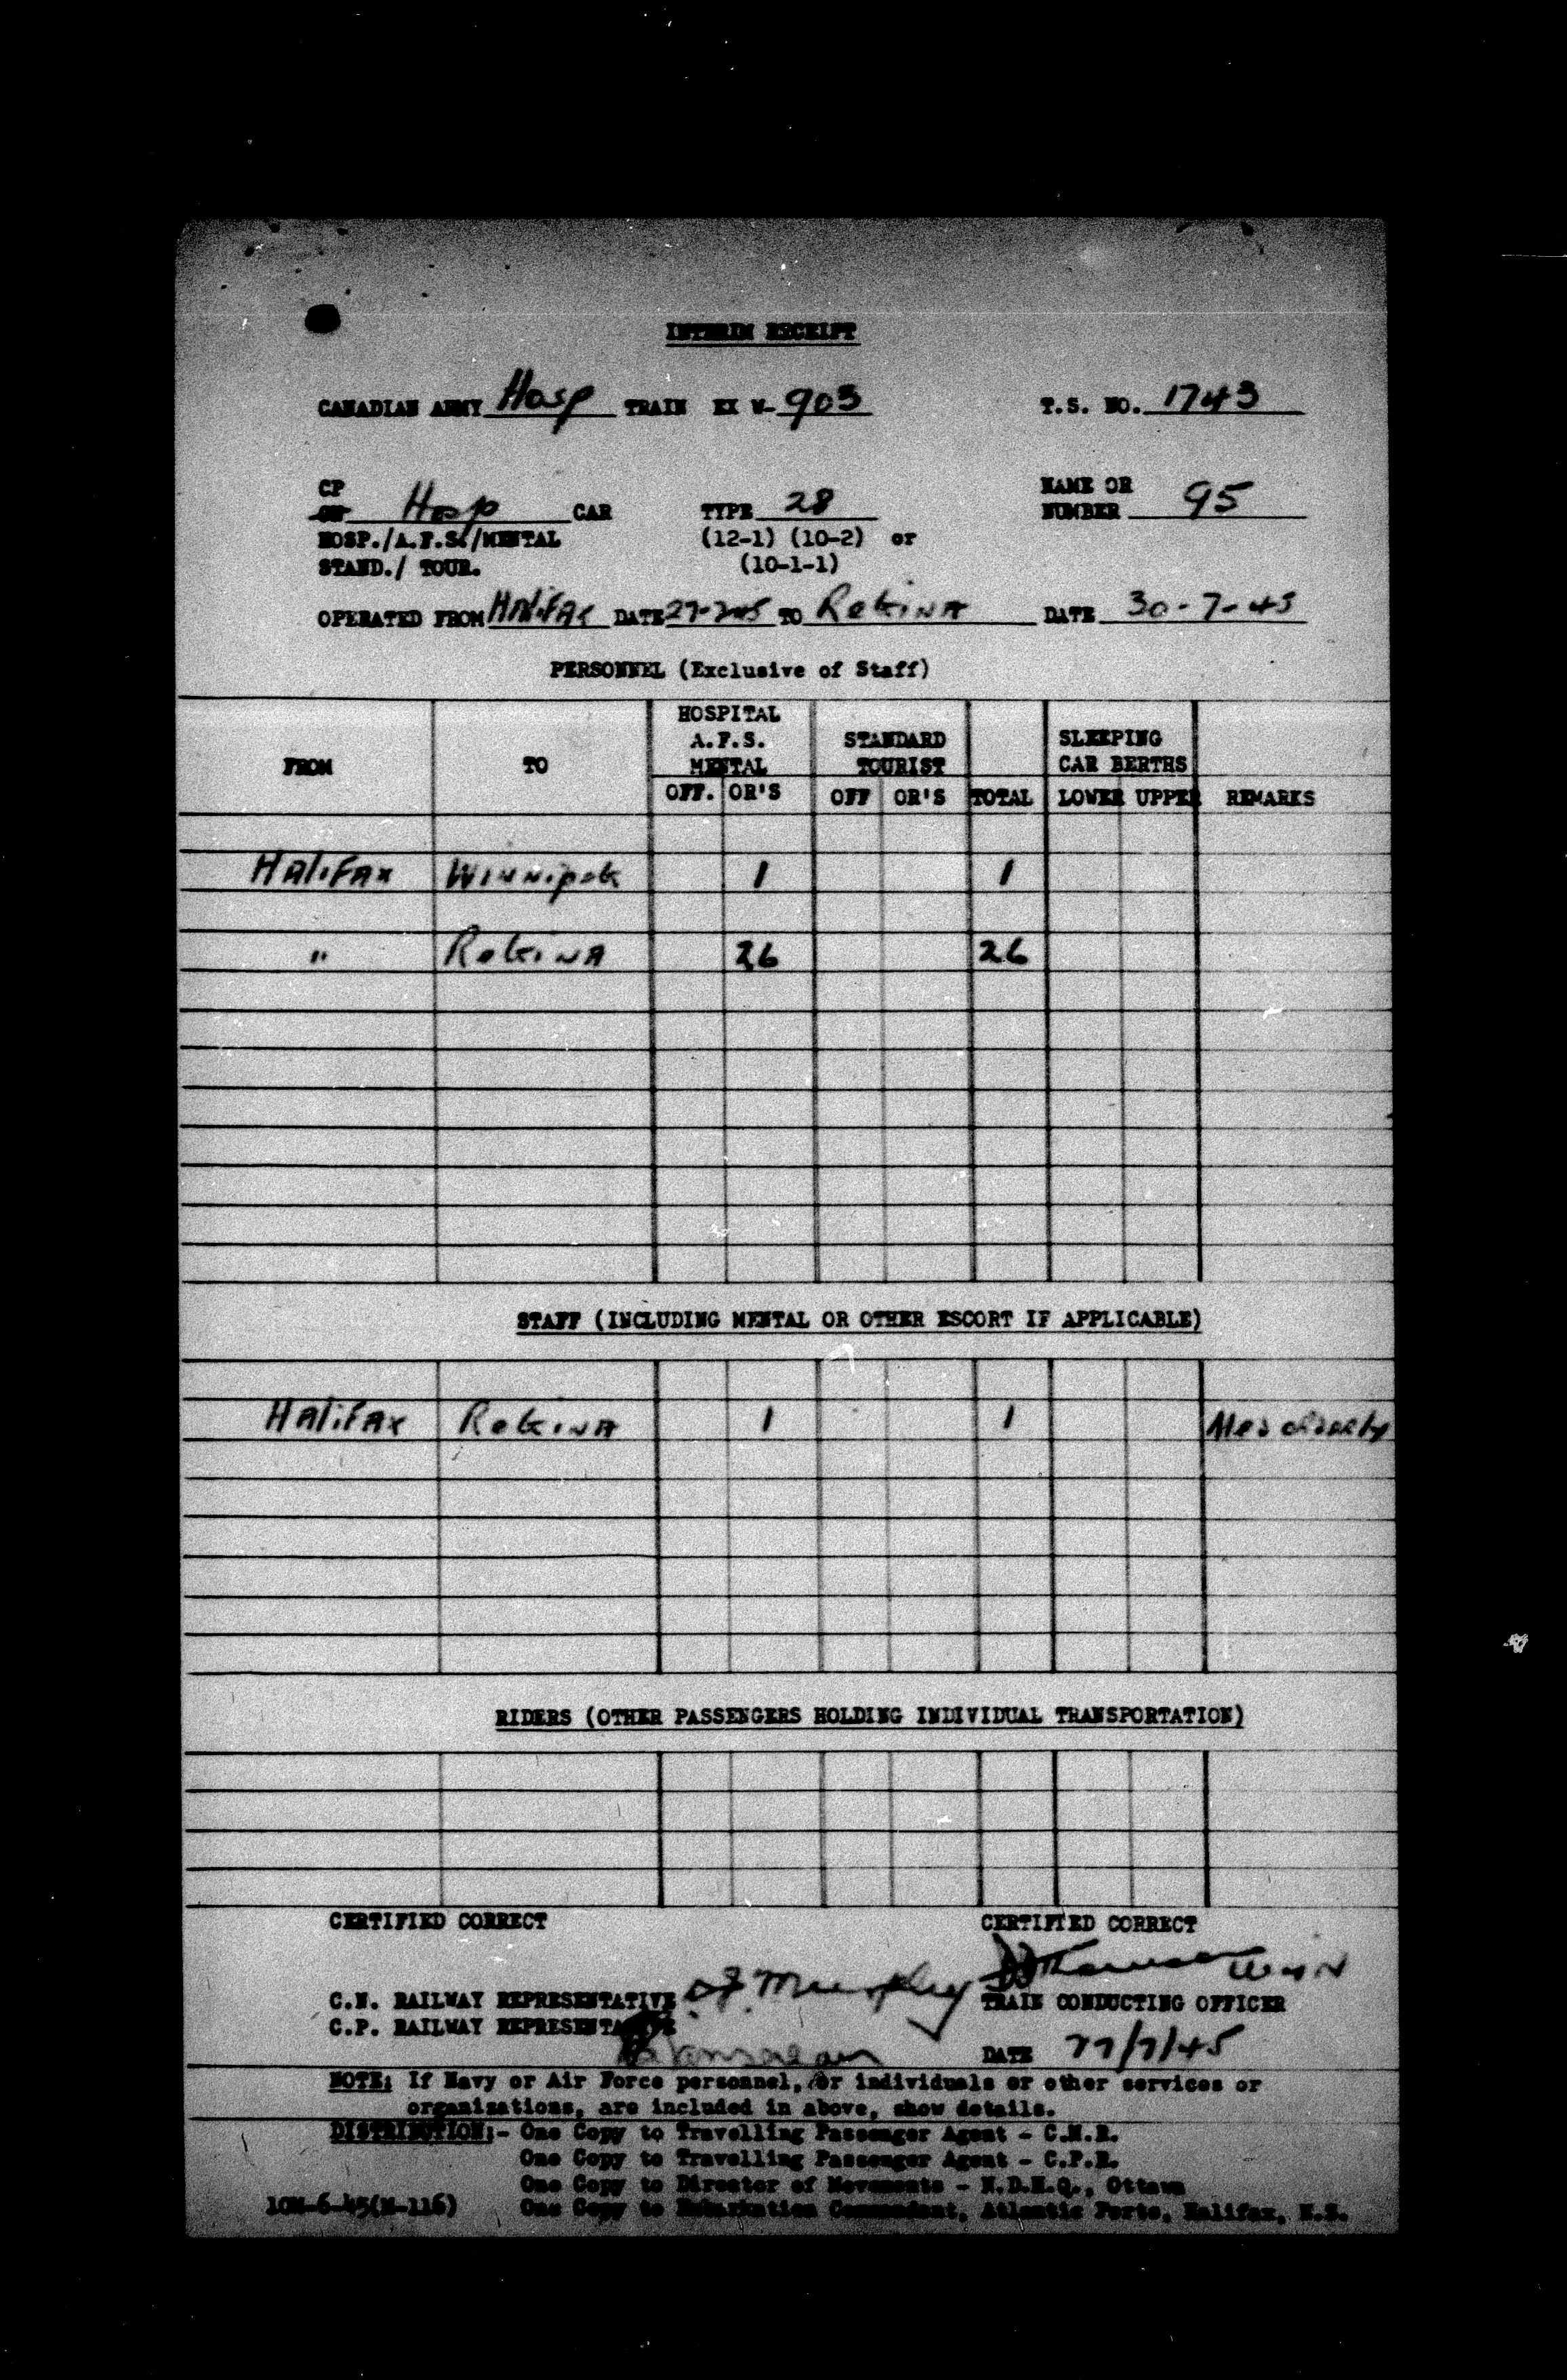 INTERIM RECEIPT
CANADIAN ARMY Hosp TRAIN EX W- 903 T.S. NO. 1743
CP
CN Hosp CAR TYPE 28 NAME OR NUMBER 95
HOSP./A.F.S./MENTAL (12-1) (10-2) or
STAND./ TOUR. (10-1-1)
OPERATED FROM HALiFAX DATE 27-7-45 TO ReGiNA DATE 30-7-45
PERSONNEL (Exclusive of Staff)
FROM TO HOSPITAL A.F.S. MENTAL STANDARD TOURIST SLEEPING CAR BERTHS
OFF. OR'S OFF OR'S TOTAL LOWER UPPER REMARKS
HALiFAX WiNNipeG 1 1
" ReGiNA 26 26
STAFF (INCLUDING MENTAL OR OTHER ESCORT IF APPLICABLE)
HALiFAX ReGiNA 1 1 Mes
RIDERS (OTHER PASSENGERS HOLDING INDIVIDUAL TRANSPORTATION)
CERTIFIED CORRECT CERTIFIED CORRECT
C.N. RAILWAY REPRESENTATIVE Murphy TRAIN CONDUCTING OFFICER
C.P. RAILWAY REPRESENTATIVE
DATE 27/7/45
NOTE: If Navy or Air Force personnel, or individuals or other services or
organizations, are included in above, show details.
DISTRIBUTION:- One Copy to Travelling Passenger Agent - C.N.R.
One Copy to Travelling Passenger Agent - C.P.R.
One Copy to Director of Movements - N.D.H.Q., Ottawa
10M-6-45(M-116) One Copy to Embarkation Commandant, Atlantic Ports, Halifax, N.S.